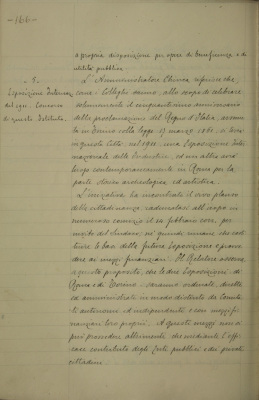 a propria disposizione per opere di beneficenza e di
utilità pubblica.
- 9 -
Esposizione Internaz.
del 1911. Concorso
di questo Istituto.
L'Amministratore Chiesa riferisce che
come i Colleghi sanno, allo scopo di celebrare
solennemente il cinquantesimo anniversario
della proclamazione del Regno d'Italia, avvenuta
colla legge 17 marzo 1861, si terrà
in questa Città, nel 1911, una Esposizione Inter
nazionale delle Industrie, ed un'altra avrà
luogo contemporaneamente in Roma per la
parte storica archeologica ed artistica.
L'iniziativa ha incontrato il vivo plauso
della cittadinanza, radunatasi allo scopo in
numeroso comizio il 10 febbraio corr. per
invito del Sindaco, ne' quindi rimane che
le basi della futura Esposizione e provve
dere ai mezzi finanziari. Il Relatore osserva
a questo proposito, che le due Esposizioni, di
Roma e di Torino, saranno ordinate, dirette
ed amministrate in modo distinto da Comita
ti autonomi ed indipendenti e con mezzi fi-
nanziari loro proprii. A questi mezzi non si
può provvedere altrimenti che mediante l'effi
cace contributo degli Enti pubblici e dei privati
cittadini.